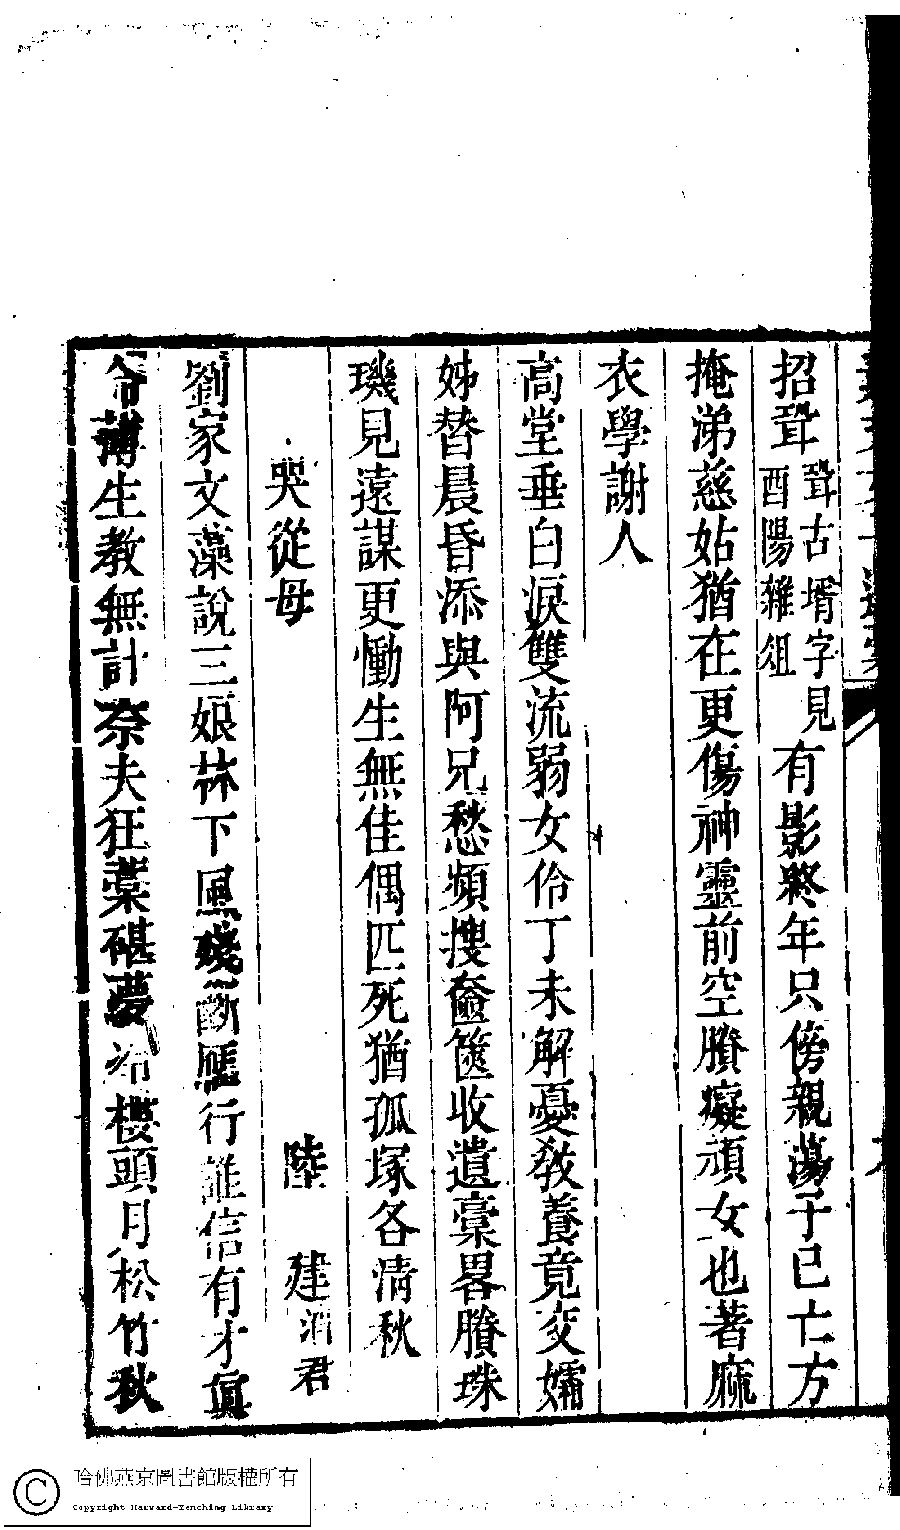 招聟聟古壻字見酉陽雜俎有影終年只傍親蕩子已亡方
掩涕慈姑猶在更傷神靈前空賸癡頑女也著麻
衣學謝人
高堂垂白淚雙流弱女伶丁未解憂教養竟交孀
姊替晨昏添與阿兄愁頻搜奩篋收遺稾畧賸珠
璣見遠謀更慟生無佳偶匹死猶孤塚各清秋
哭從母 陸建湄君
劉家文藻說三娘林下風殘斷雁行誰信有才眞
命薄生教無計奈夫狂藁碪夢冷樓頭月松竹秋
哈佛燕京圖書館版權所有
Copyright Harvard-Yenching Library